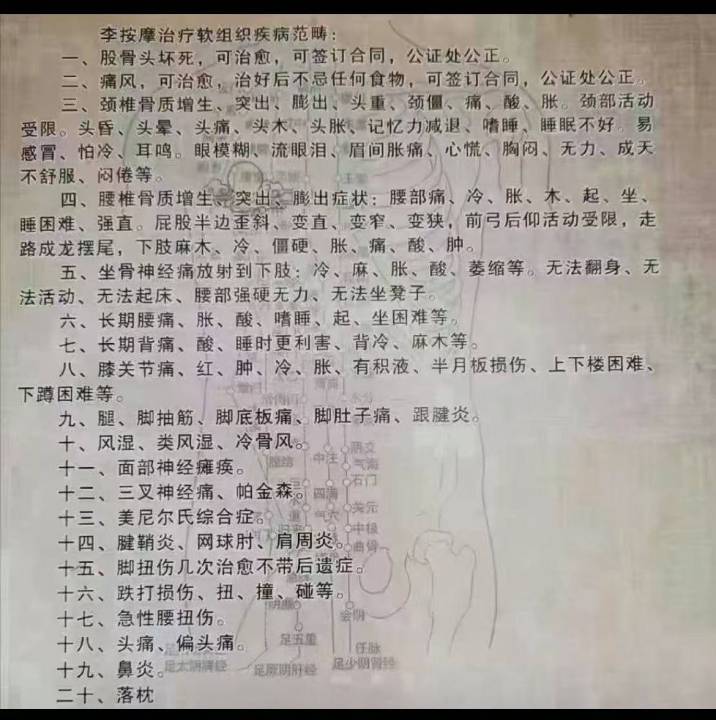 李按摩治疗软组织疾病范畴：
一、股骨头坏死，可治愈，可签订合同，公证处公正。
二、痛风，可治愈，治好后不忌任何食物，可签订合同，公证处公正。
三、颈椎骨质增生、突出、膨出、头重、颈僵、痛、酸、胀。颈部活动
受限。头昏、头晕、头痛、头木、头胀、记忆力减退、嗜睡、睡眠不好。易
感冒、怕冷、耳鸣。眼模糊、流眼泪、眉间胀痛、心慌、胸闷、无力、成天
不舒服、闷倦等。
四、腰椎骨质增生、突出、膨出症状：腰部痛、冷、胀、木、起、坐、
睡困难、强直。屁股半边歪斜、变直、变窄、变狭，前弓后仰活动受限，走
路成龙摆尾，下肢麻木、冷、僵硬、胀、痛、酸、肿。
五、坐骨神经痛放射到下肢：冷、麻、胀、酸、萎缩等。无法翻身、无
法活动、无法起床、腰部强硬无力、无法坐凳子。
六、长期腰痛、胀、酸、嗜睡、起、坐困难等。
七、长期背痛、酸、睡时更利害、背冷、麻木等。
八、膝关节痛、红、肿、冷、胀、有积液、半月板损伤、上下楼困难、
下蹲困难等。
九、腿、脚抽筋、脚底板痛、脚肚子痛、跟腱炎。
十、风湿、类风湿、冷骨风。
十一、面部神经瘫痪。
十二、三叉神经痛、帕金森。
十三、美尼尔氏综合症。
十四、腱鞘炎、网球肘、肩周炎。
十五、脚扭伤几次治愈不带后遗症。
十六、跌打损伤、扭、撞、碰等。
十七、急性腰扭伤。
十八、头痛、偏头痛。
十九、鼻炎。
二十、落枕
水分
阴交
气海
石门
关元
中极
曲骨
中注
四满
气穴
会阴
任脉
足五里
足太阴脾经
足厥阴肝经
足少阴肾经